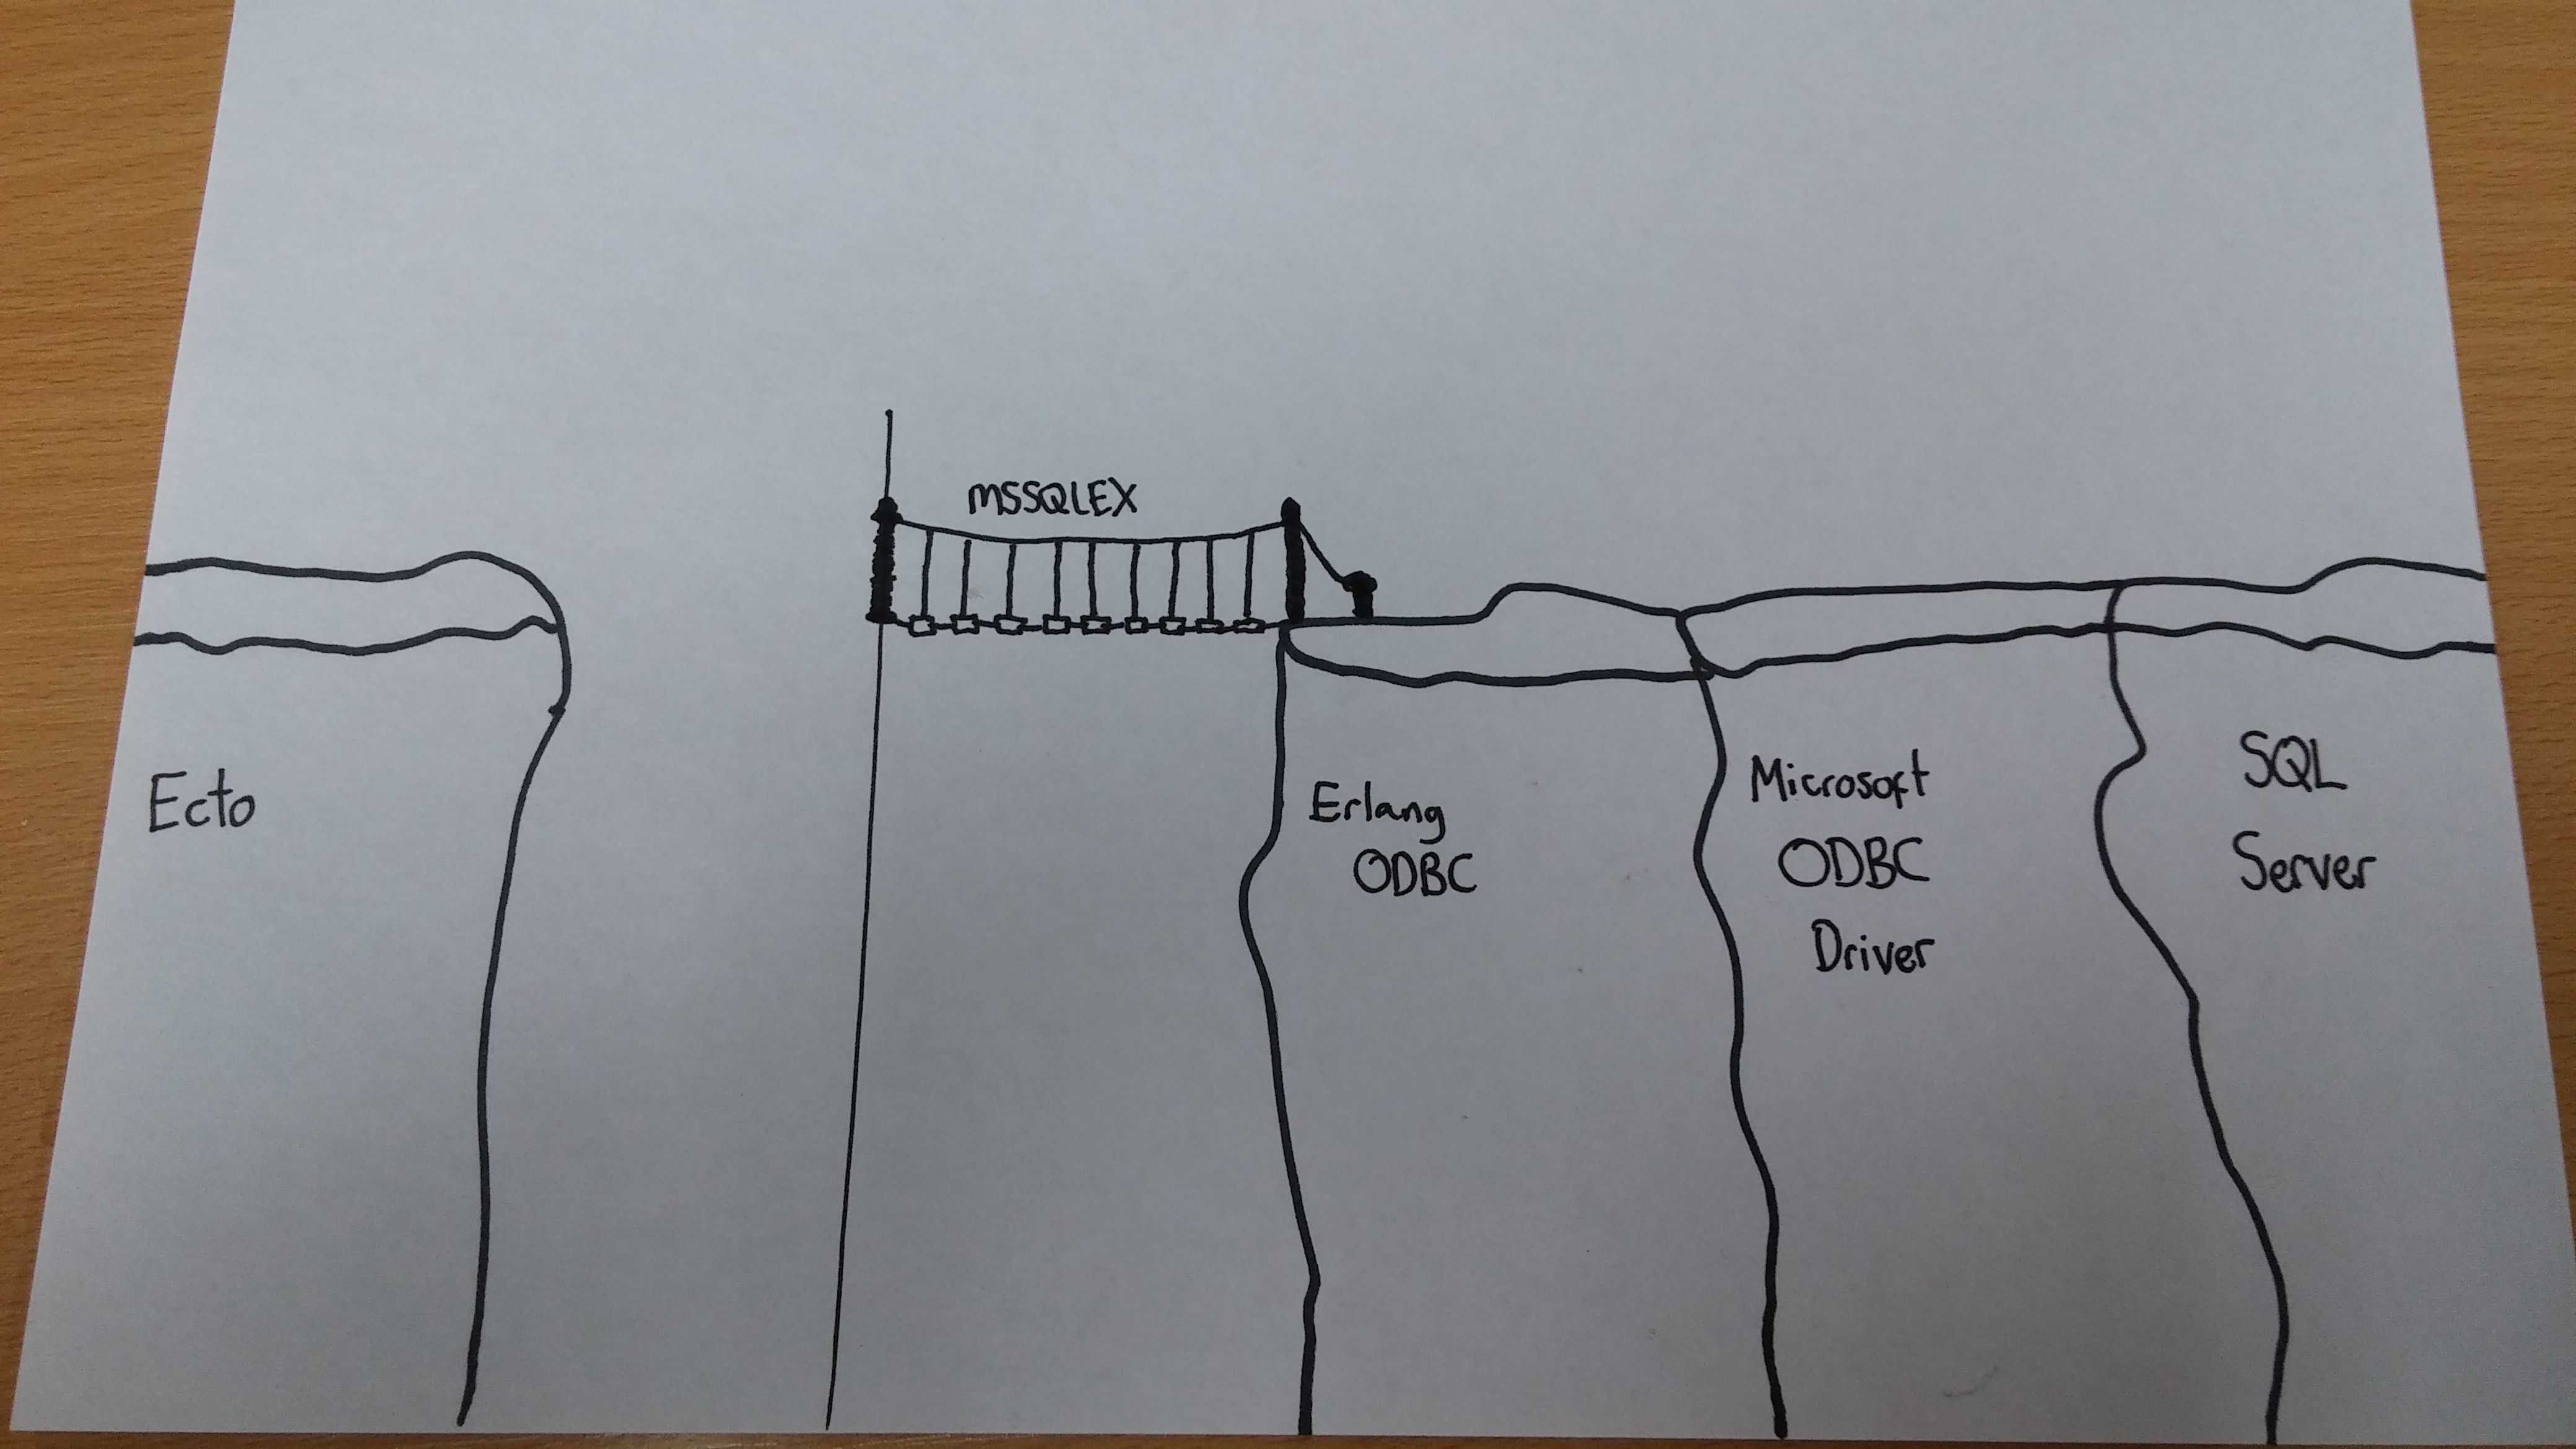 Ecto
MSSQLEX
Erlang
ODBC
Microsoft
ODBC
Driver
SQL
Server